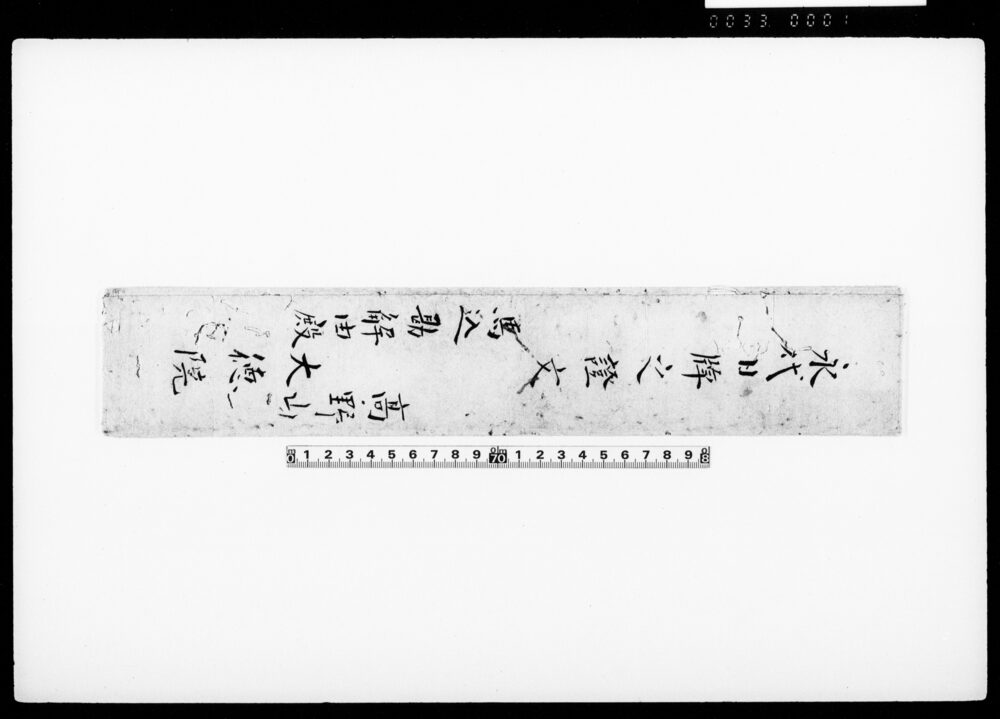 0033 0001
永代日牌之證文
馬込勘解由殿
高野山
大徳院
0 1 2 3 4 5 6 7 8 9 70 1 2 3 4 5 6 7 8 9 8